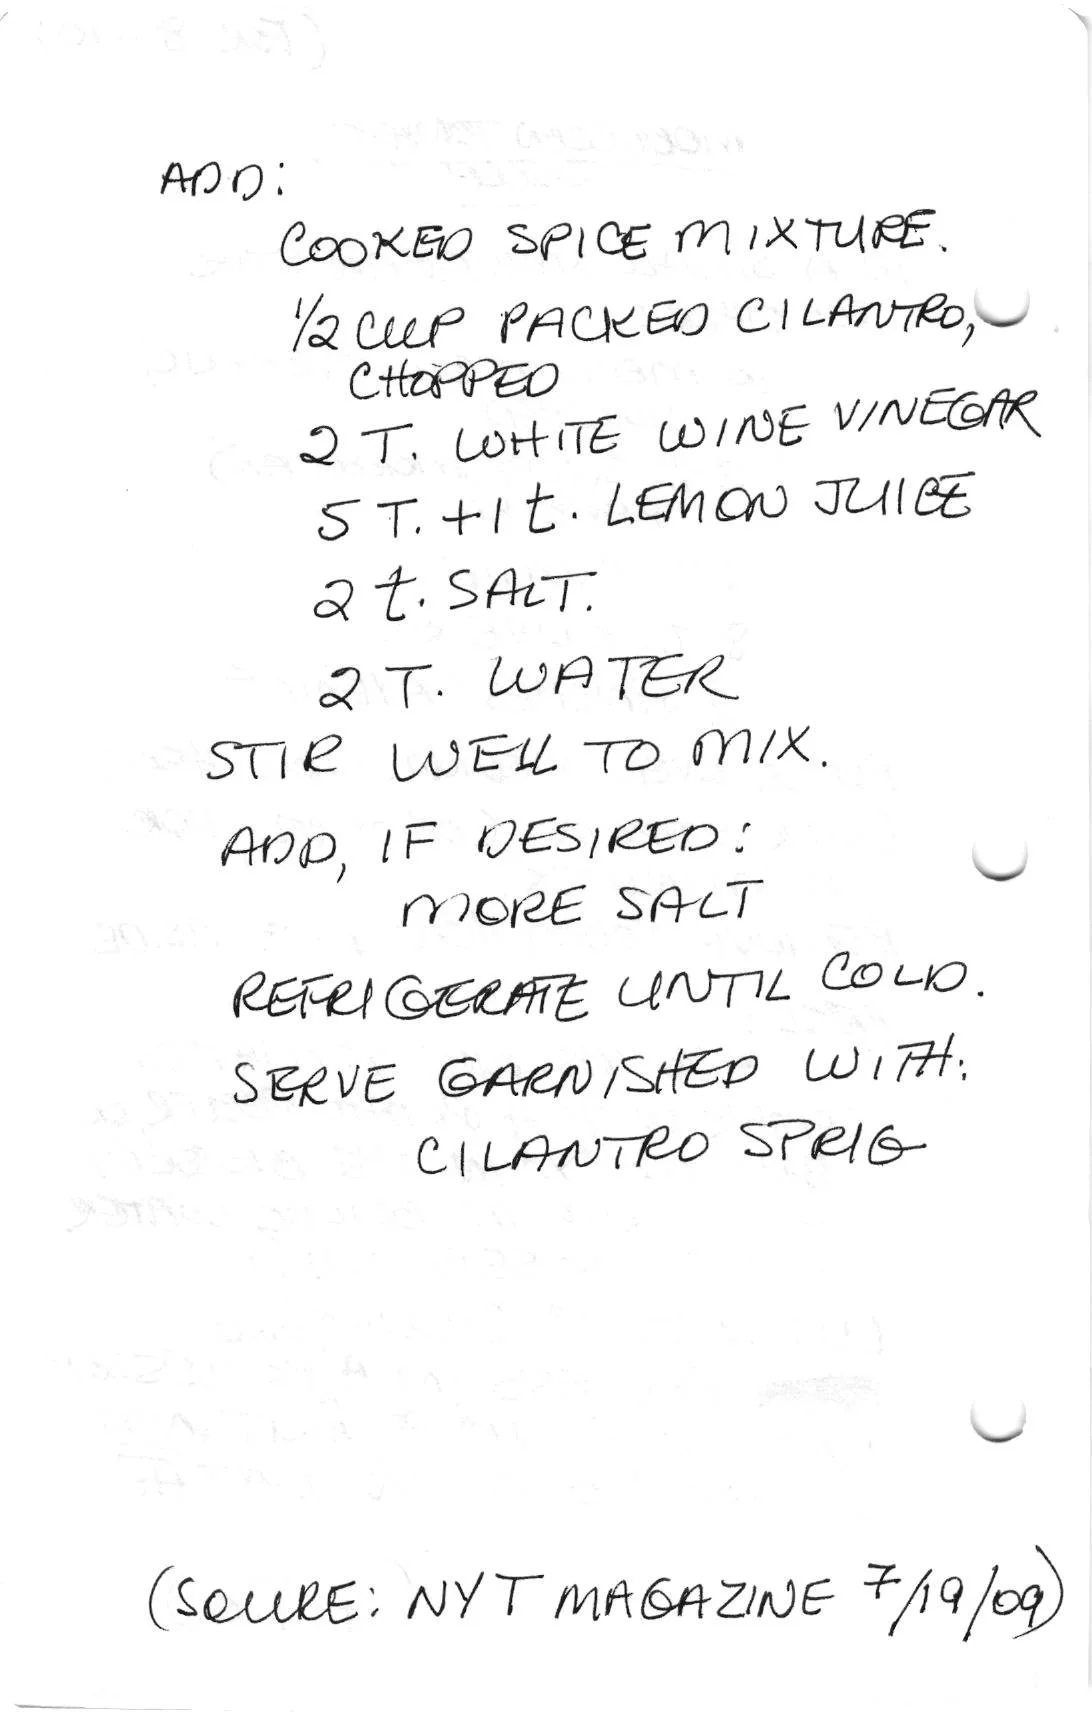 ADD:
COOKED SPICE MIXTURE.
1/2 CUP PACKED CILANTRO,
CHOPPED
2 T. WHITE WINE VINEGAR
5 T. + 1 t. LEMON JUICE
2 t. SALT.
2 T. WATER
STIR WELL TO MIX.
ADD, IF DESIRED:
MORE SALT
REFRIGERATE UNTIL COLD.
SERVE GARNISHED WITH:
CILANTRO SPRIG
(SOURE: NYT MAGAZINE 7/19/09)